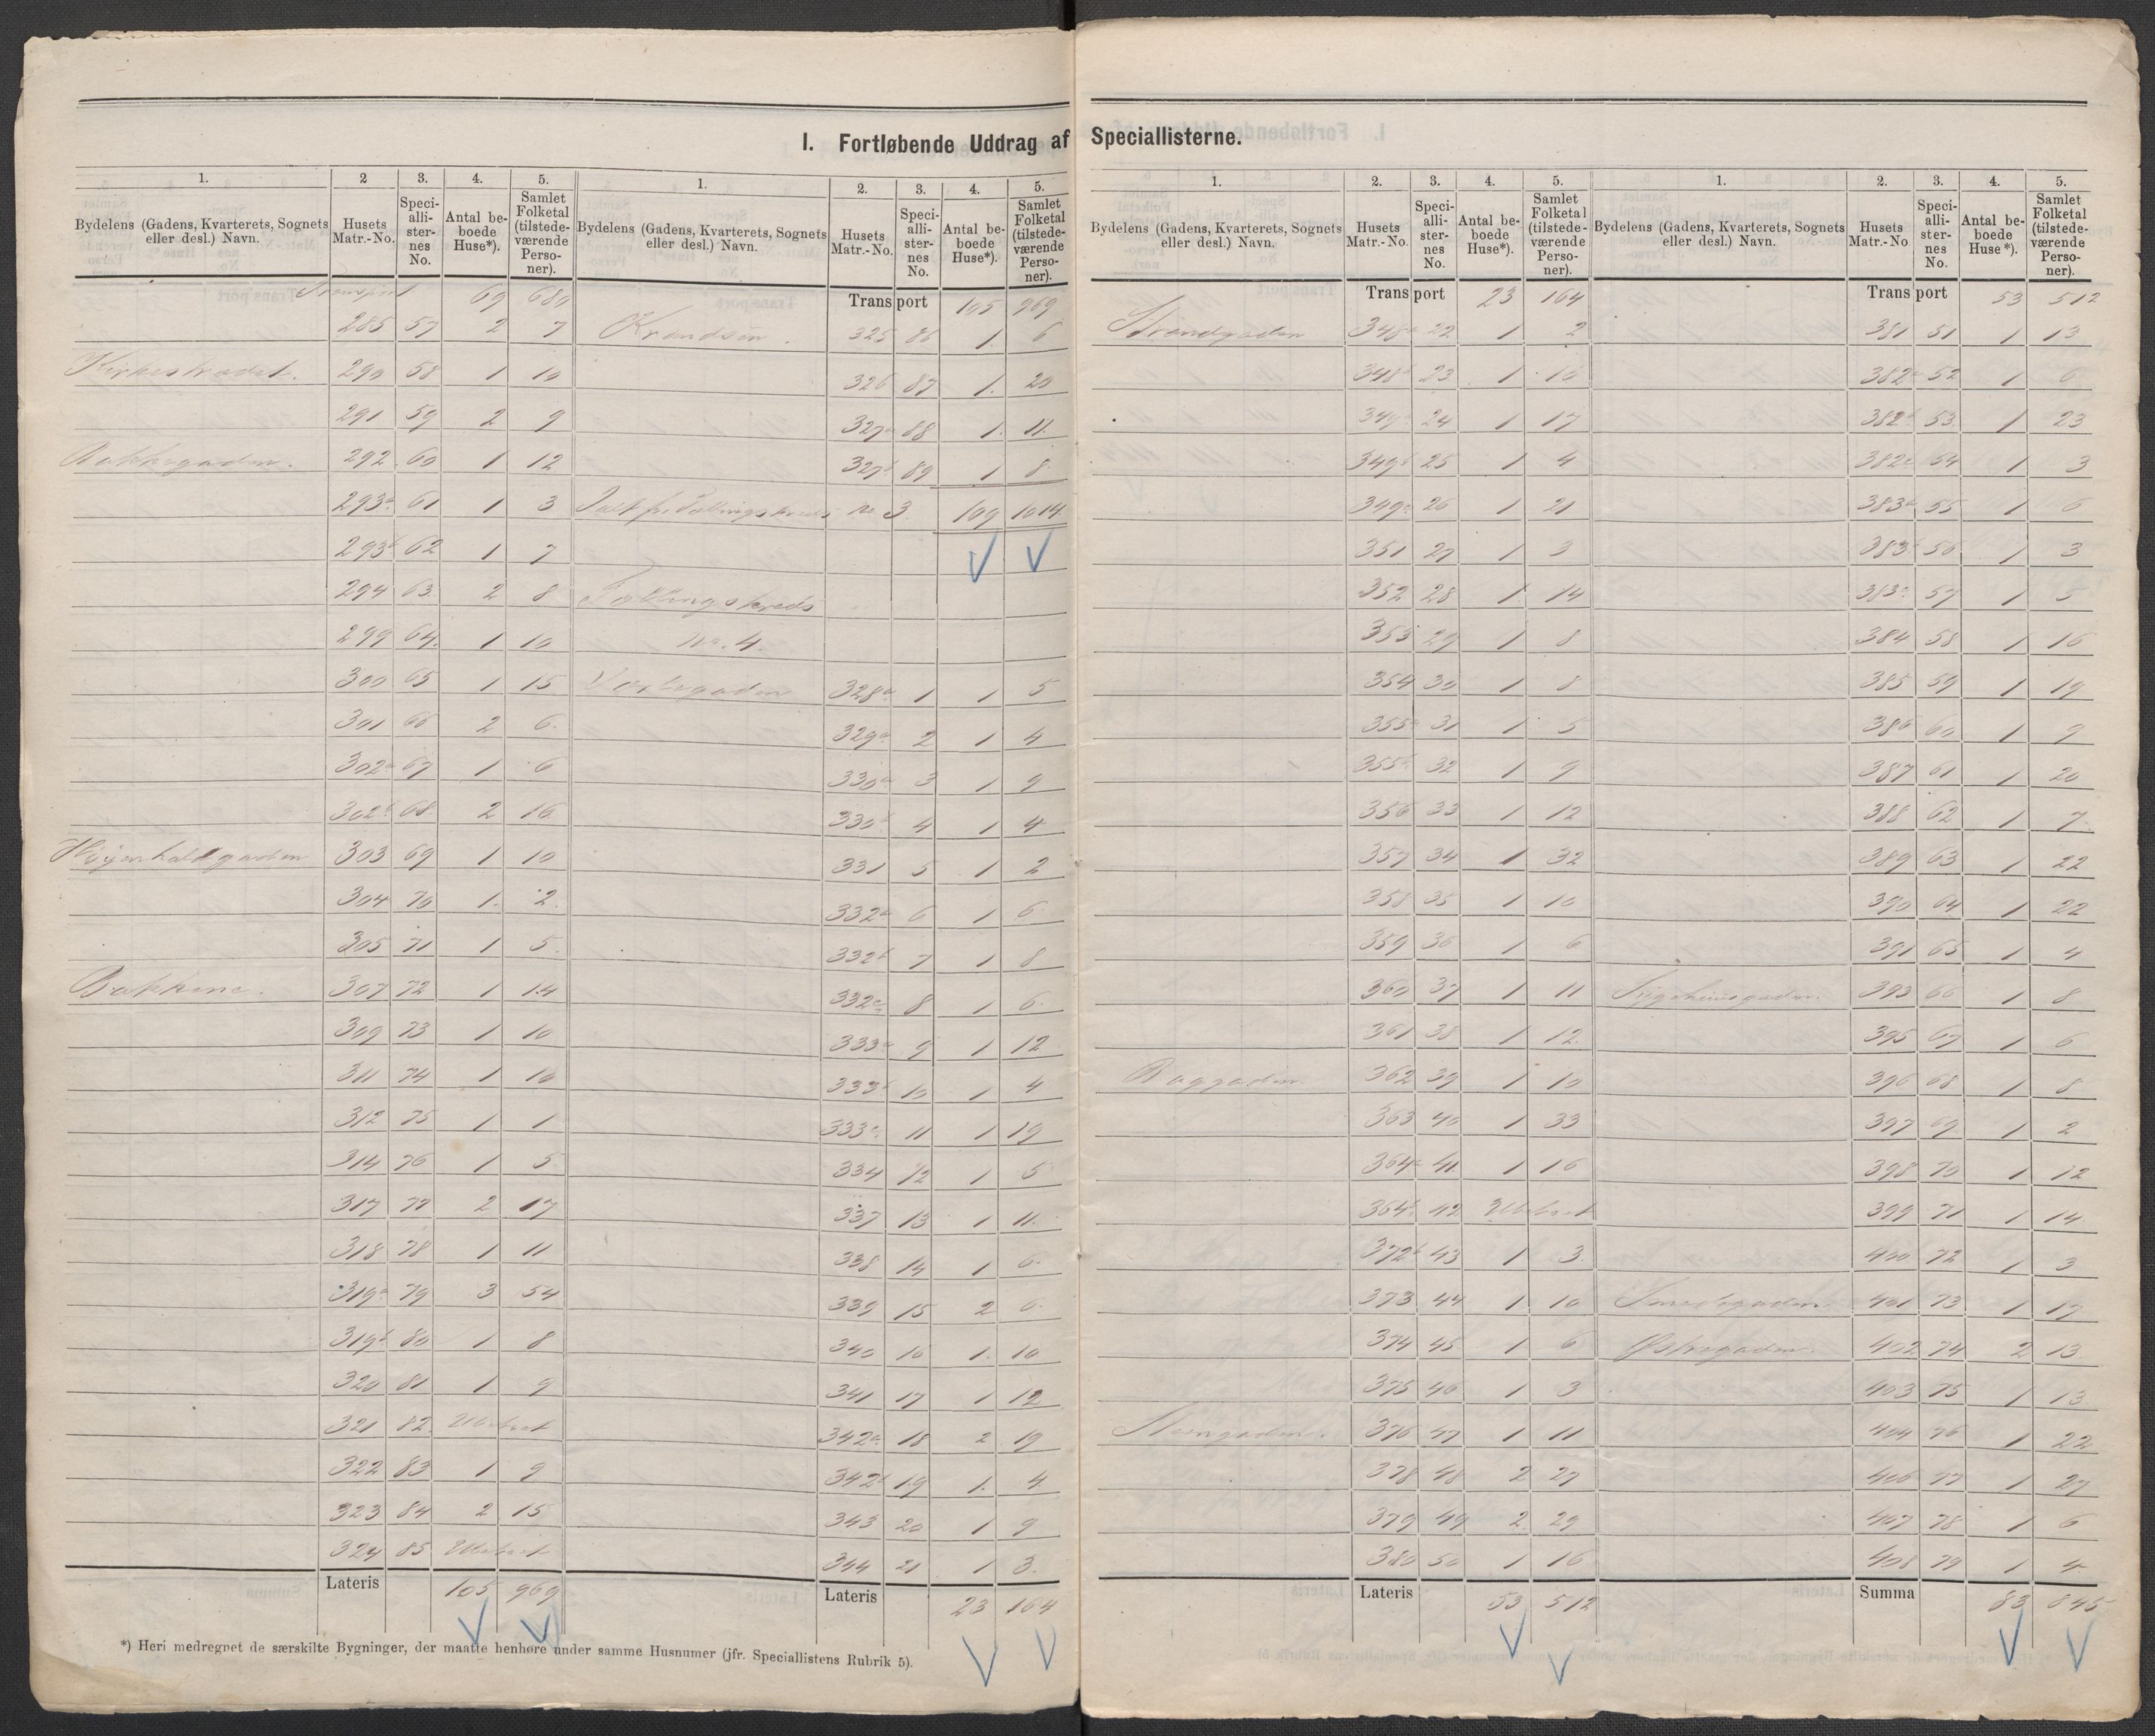 I. Fortløbende Uddrag af Speciallisterne.
1. 2 3. 4. 5.
Bydelens (Gadens, Kvarterets, Sognets eller desl.) Navn. Husets Matr.-No. Specialli-sternes No. Antal beboede Huse*). Samlet Folketal (tilstedeværende Personer).
Transport 69 680
285 57 2 7
Kirkestrædet. 290 58 1 10
291 59 2 9
Bakkegaden. 292 60 1 12
293a 61 1 3
293b 62 1 7
294 63 2 8
299 64 1 10
300 65 1 15
301 66 2 6
302a 67 1 6
302b 68 2 16
303 69 1 10
304 70 1 2
305 71 1 5
Bakkene. 307 72 1 14
309 73 1 10
311 74 1 10
312 75 1 1
314 76 1 5
317 77 2 17
318 78 1 11
319a 79 3 54
319b 80 1 8
320 81 1 9
321 82 Ubeboet
322 83 1 9
323 84 2 15
324 85 Ubeboet
Lateris 105 969
*) Heri medregnet de særskilte Bygninger, der maatte henhøre under samme Husnumer (jfr. Speciallistens Rubrik 5).
1. 2. 3. 4. 5.
Bydelens (Gadens, Kvarterets, Sognets eller desl.) Navn. Husets Matr.-No. Specialli-sternes No. Antal beboede Huse*). Samlet Folketal (tilstedeværende Personer).
Transport 105 969
325 86 1 6
326 87 1 20
327a 88 1 11
327b 89 1 8
Ialt for Tællingskreds No 3 109 1014
Tællingskreds
No. 4.
328a 1 1 5
329a 2 1 4
330a 3 1 9
330b 4 1 4
331 5 1 2
332a 6 1 6
332b 7 1 8
332c 8 1 6
333a 9 1 12
333b 10 1 4
333c 11 1 19
334 12 1 5
337 13 1 11
338 14 1 6
339 15 2 6
340 16 1 10
341 17 1 12
342a 18 2 19
342b 19 1 4
343 20 1 9
344 21 1 3
Lateris 23 164
1. 2. 3. 4. 5.
Bydelens (Gadens, Kvarterets, Sognets eller desl.) Navn. Husets Matr.-No. Specialli-sternes No. Antal beboede Huse*). Samlet Folketal (tilstedeværende Personer).
Transport 23 164
Strandgaden 348a 22 1 2
348b 23 1 10
349a 24 1 17
349b 25 1 4
349c 26 1 21
351 27 1 3
352 28 1 14
353 29 1 8
354 30 1 8
355a 31 1 5
355b 32 1 9
356 33 1 12
357 34 1 32
358 35 1 10
359 36 1 6
360 37 1 11
361 38 1 12
Baggaden 362 39 1 10
363 40 1 33
364a 41 1 16
364b 42 Ubeboet
372b 43 1 3
373 44 1 10
374 45 1 6
375 46 1 3
376 47 1 11
378 48 2 27
379 49 2 29
380 50 1 16
Lateris 53 512
1. 2. 3. 4. 5.
Bydelens (Gadens, Kvarterets, Sognets eller desl.) Navn. Husets Matr.-No Specialli-sternes No. Antal beboede Huse*). Samlet Folketal (tilstedeværende Personer).
Transport 53 512
381 51 1 13
382a 52 1 6
382b 53 1 23
382c 54 1 3
383a 55 1 6
383b 56 1 3
383c 57 1 5
384 58 1 16
385 59 1 19
386 60 1 9
387 61 1 20
388 62 1 7
389 63 1 22
390 64 1 22
391 65 1 4
Sygehusgaden. 393 66 1 8
395 67 1 6
396 68 1 8
397 69 1 2
398 70 1 12
399 71 1 14
400 72 1 3
Smedegaden 401 73 1 17
Østregaden. 402 74 2 13
403 75 1 13
404 76 1 22
406 77 1 27
407 78 1 6
408 79 1 4
Summa 83 845